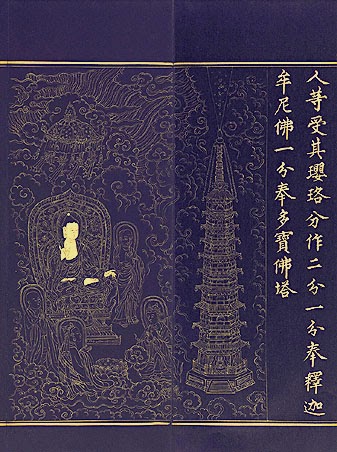 人等受其瓔珞分作二分一分奉釋迦
牟尼佛一分奉多寶佛塔